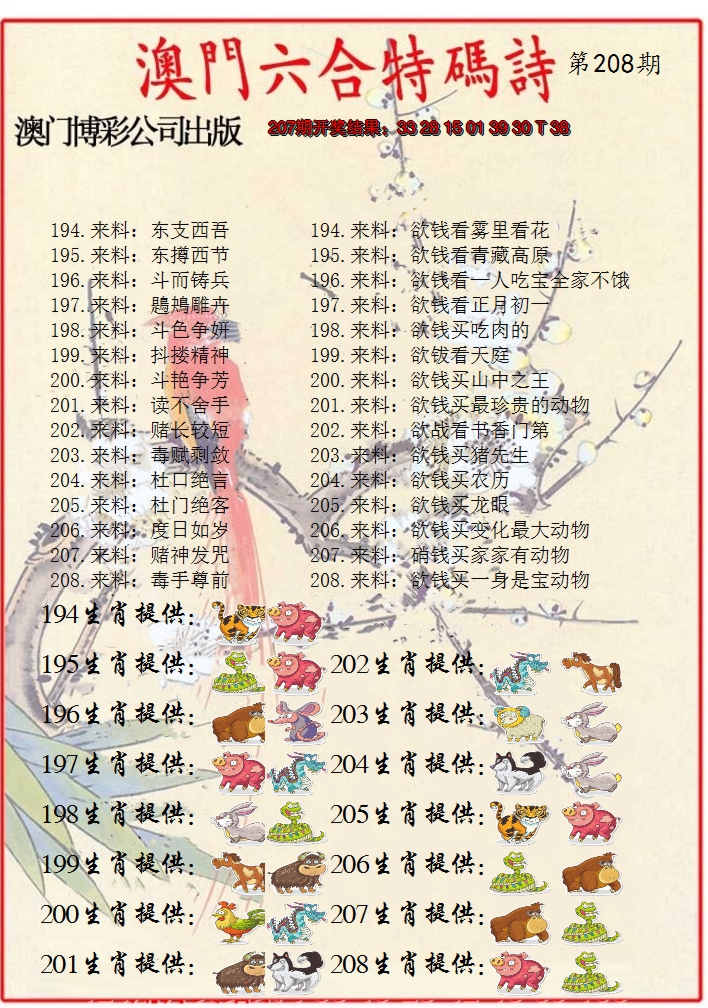 澳門六合特碼詩 第208期
澳门博彩公司出版 207期开奖结果：33 28 15 01 39 30 T 36
194.来料：东支西吾 194.来料：欲钱看雾里看花
195.来料：东撙西节 195.来料：欲钱看青藏高原
196.来料：斗而铸兵 196.来料：欲钱看一人吃宝全家不饿
197.来料：鵾鴂雕卉 197.来料：欲钱看正月初一
198.来料：斗色争妍 198.来料：欲钱买吃肉的
199.来料：抖搂精神 199.来料：欲钹看天庭
200.来料：斗艳争芳 200.来料：欲钱买山中之王
201.来料：读不舍手 201.来料：欲钱买最珍贵的动物
202.来料：赌长较短 202.来料：欲战看书香门第
203.来料：毒赋剩敛 203.来料：欲钱买猪先生
204.来料：杜口绝言 204.来料：欲钱买农历
205.来料：杜门绝客 205.来料：欲钱买龙眼
206.来料：度日如岁 206.来料：欲钱买变化最大动物
207.来料：赌神发咒 207.来料：硝钱买家家有动物
208.来料：毒手尊前 208.来料：欲钱买一身是宝动物
194生肖提供：
195生肖提供： 202生肖提供：
196生肖提供： 203生肖提供：
197生肖提供： 204生肖提供：
198生肖提供： 205生肖提供：
199生肖提供： 206生肖提供：
200生肖提供： 207生肖提供：
201生肖提供： 208生肖提供：